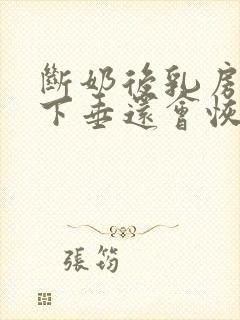 斷奶後乳房
下垂還會恢
張筠